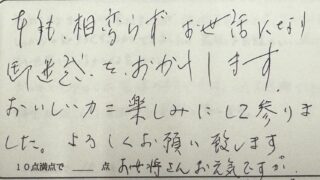 年毎、相変らず、お世話になり
御迷惑をおかけします。
おいしいカニ楽しみにして参りま
した。よろしくお願い致します
10点満点で ___ 点 お女将さんお元気ですか。